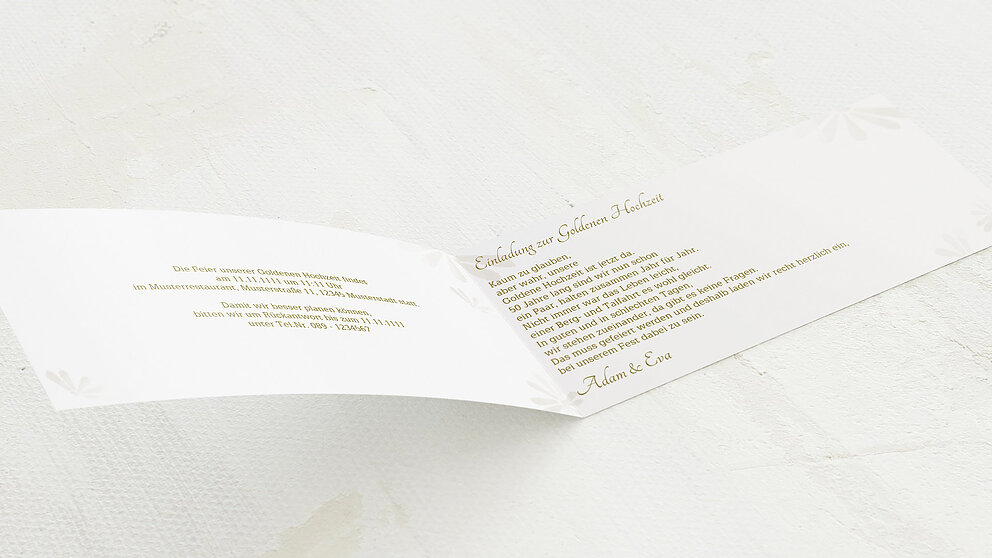 Die Feier unserer Goldenen Hochzeit findet
am 11.11.1111 um 11:11 Uhr
im Musterrestaurant, Musterstraße 11, 12345 Musterstadt statt.
Damit wir besser planen können,
bitten wir um Rückantwort bis zum 11.11.1111
unter Tel.Nr. 089 - 1234567
Einladung zur Goldenen Hochzeit
Kaum zu glauben,
aber wahr, unsere
Goldene Hochzeit ist jetzt da.
50 Jahre lang sind wir nun schon
ein Paar, halten zusammen Jahr für Jahr.
Nicht immer war das Leben leicht,
einer Berg- und Talfahrt es wohl gleicht.
In guten und in schlechten Tagen,
wir stehen zueinander, da gibt es keine Fragen.
Das muss gefeiert werden und deshalb laden wir recht herzlich ein,
bei unserem Fest dabei zu sein.
Adam & Eva